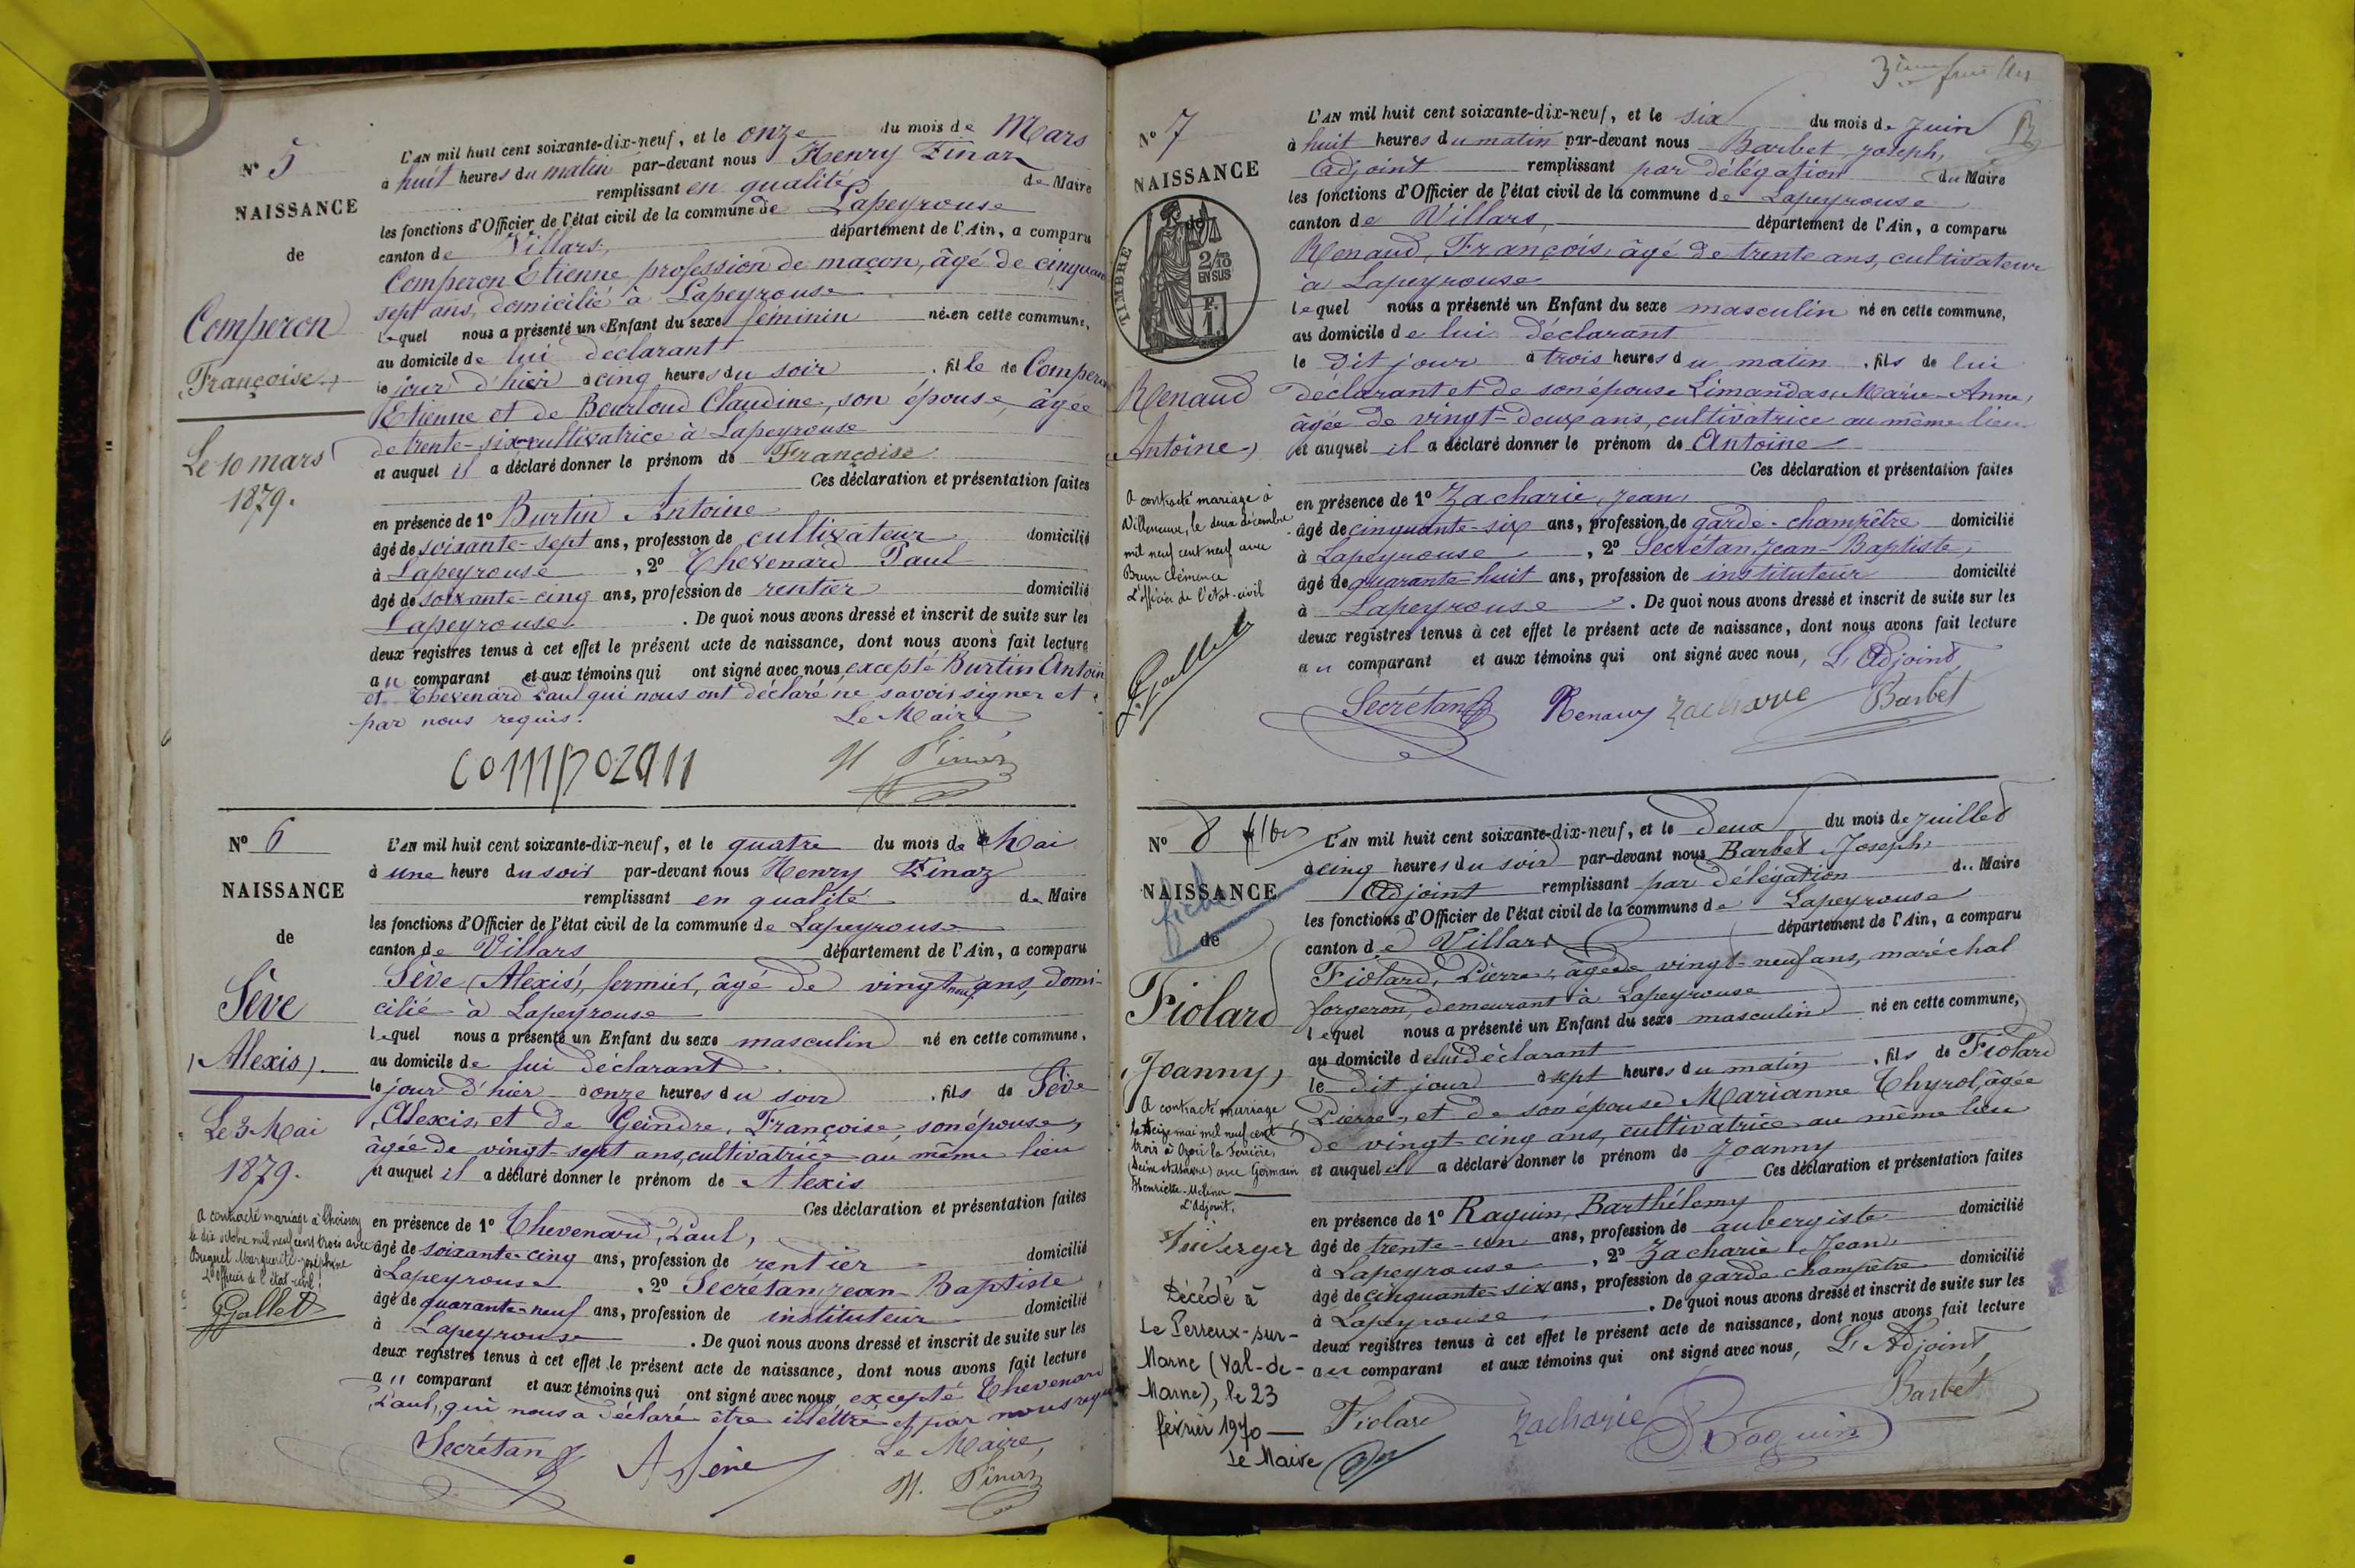 N° 5
NAISSANCE
de
Comperon
Françoise
Le 10 mars
1879.
L'AN mil huit cent soixante-dix-neuf, et le onze du mois de Mars
à huit heures du matin par-devant nous Henry Finaz
remplissant en qualité de Maire
les fonctions d'Officier de l'état civil de la commune de Lapeyrouse
canton de Villars, département de l'Ain, a comparu
Comperon Etienne profession de maçon, âgé de cinquante
sept ans, domicilié à Lapeyrouse
lequel nous a présenté un Enfant du sexe féminin né en cette commune,
au domicile de lui déclarant
le jour d'hier à cinq heures du soir, fille de Comperon
Etienne et de Bourloud Claudine, son épouse, âgée
de trente-six cultivatrice à Lapeyrouse
et auquel il a déclaré donner le prénom de Françoise
Ces déclaration et présentation faites
en présence de 1° Burtin Antoine
âgé de soixante-sept ans, profession de cultivateur domicilié
à Lapeyrouse, 2° Thevenard Paul
âgé de soixante-cinq ans, profession de rentier domicilié
Lapeyrouse. De quoi nous avons dressé et inscrit de suite sur les
deux registres tenus à cet effet le présent acte de naissance, dont nous avons fait lecture
au comparant et aux témoins qui ont signé avec nous, excepté Burtin Antoin
et Thevenard Paul qui nous ont déclaré ne savoir signer et
par nous requis. Le Maire
H. Finaz
N° 6
NAISSANCE
de
Sève
(Alexis).
Le 3 Mai
1879.
a contracté mariage à
le dix octobre mil neuf cent trois avec
Buguet Marguerite-Joséphine
L'officier de l'état-civil
Gallet
L'AN mil huit cent soixante-dix-neuf, et le quatre du mois de Mai
à une heure du soir par-devant nous Henry Finaz
remplissant en qualité de Maire
les fonctions d'Officier de l'état civil de la commune de Lapeyrouse
canton de Villars département de l'Ain, a comparu
Sève (Alexis), fermier, âgé de vingt neuf ans, domi-
cilié à Lapeyrouse
lequel nous a présenté un Enfant du sexe masculin né en cette commune,
au domicile de lui déclarant
le jour d'hier à onze heures du soir, fils de Sève
Alexis, et de Geindre, Françoise, son épouse,
âgée de vingt-sept ans, cultivatrice au même lieu
et auquel il a déclaré donner le prénom de Alexis
Ces déclaration et présentation faites
en présence de 1° Thevenard, Paul,
âgé de soixante-cinq ans, profession de rentier domicilié
à Lapeyrouse, 2° Secrétan Jean-Baptiste
âgé de quarante-neuf ans, profession de instituteur domicilié
à Lapeyrouse. De quoi nous avons dressé et inscrit de suite sur les
deux registres tenus à cet effet le présent acte de naissance, dont nous avons fait lecture
au comparant et aux témoins qui ont signé avec nous, excepté Thevenard
Paul, qui nous a déclaré être illettré et par nous requis
Secrétan A Sève Le Maire,
H. Finaz
N° 7
NAISSANCE
de
TIMBRE
2/10
EN SUS
F.
1.
Renaud
Antoine,
A contracté mariage à
Villeneuve, le deux décembre
mil neuf cent neuf avec
Brun Clémence
L'officier de l'état-civil
Gallet
L'AN mil huit cent soixante-dix-neuf, et le six du mois de Juin
à huit heures du matin par-devant nous Barbet, Joseph,
Adjoint remplissant par délégation du Maire
les fonctions d'Officier de l'état civil de la commune de Lapeyrouse
canton de Villars, département de l'Ain, a comparu
Renaud, François, âgé de trente ans, cultivateur
à Lapeyrouse
lequel nous a présenté un Enfant du sexe masculin né en cette commune,
au domicile de lui déclarant
le dit jour à trois heures du matin, fils de lui
déclarant et de son épouse Limandas, Marie-Anne,
âgée de vingt-deux ans, cultivatrice au même lieu
et auquel il a déclaré donner le prénom de Antoine
Ces déclaration et présentation faites
en présence de 1° Zacharie, Jean,
âgé de cinquante-six ans, profession de garde-champêtre domicilié
à Lapeyrouse, 2° Secrétan, Jean-Baptiste,
âgé de quarante-huit ans, profession de instituteur domicilié
à Lapeyrouse. De quoi nous avons dressé et inscrit de suite sur les
deux registres tenus à cet effet le présent acte de naissance, dont nous avons fait lecture
au comparant et aux témoins qui ont signé avec nous, L'Adjoint,
Secrétan Renaud Zacharie Barbet
N° 8
NAISSANCE
de
Fiolard
Joanny,
A contracté mariage
le seize mai mil neuf cent
trois à Ozoir la Ferrière,
(Seine et Marne) avec Germain
Henriette-Mélina
L'Adjoint,
Décédé à
Le Perreux-sur-
Marne (Val-de-
Marne), le 23
février 1970
Le Maire
L'AN mil huit cent soixante-dix-neuf, et le deux du mois de Juillet
à cinq heures du soir par-devant nous Barbet, Joseph,
Adjoint remplissant par délégation du Maire
les fonctions d'Officier de l'état civil de la commune de Lapeyrouse
canton de Villars département de l'Ain, a comparu
Fiolard, Pierre, âgé de vingt-neuf ans, maréchal
forgeron, demeurant à Lapeyrouse
lequel nous a présenté un Enfant du sexe masculin né en cette commune,
au domicile de lui déclarant
le dit jour à sept heures du matin, fils de Fiolard
Pierre, et de son épouse Marianne Thyrol, âgée
de vingt-cinq ans, cultivatrice au même lieu
et auquel il a déclaré donner le prénom de Joanny
Ces déclaration et présentation faites
en présence de 1° Raquin, Barthélemy
âgé de trente-un ans, profession de aubergiste domicilié
à Lapeyrouse, 2° Zacharie Jean,
âgé de cinquante-six ans, profession de garde champêtre domicilié
à Lapeyrouse. De quoi nous avons dressé et inscrit de suite sur les
deux registres tenus à cet effet le présent acte de naissance, dont nous avons fait lecture
au comparant et aux témoins qui ont signé avec nous, L'Adjoint,
Fiolard Zacharie Raquin Barbet